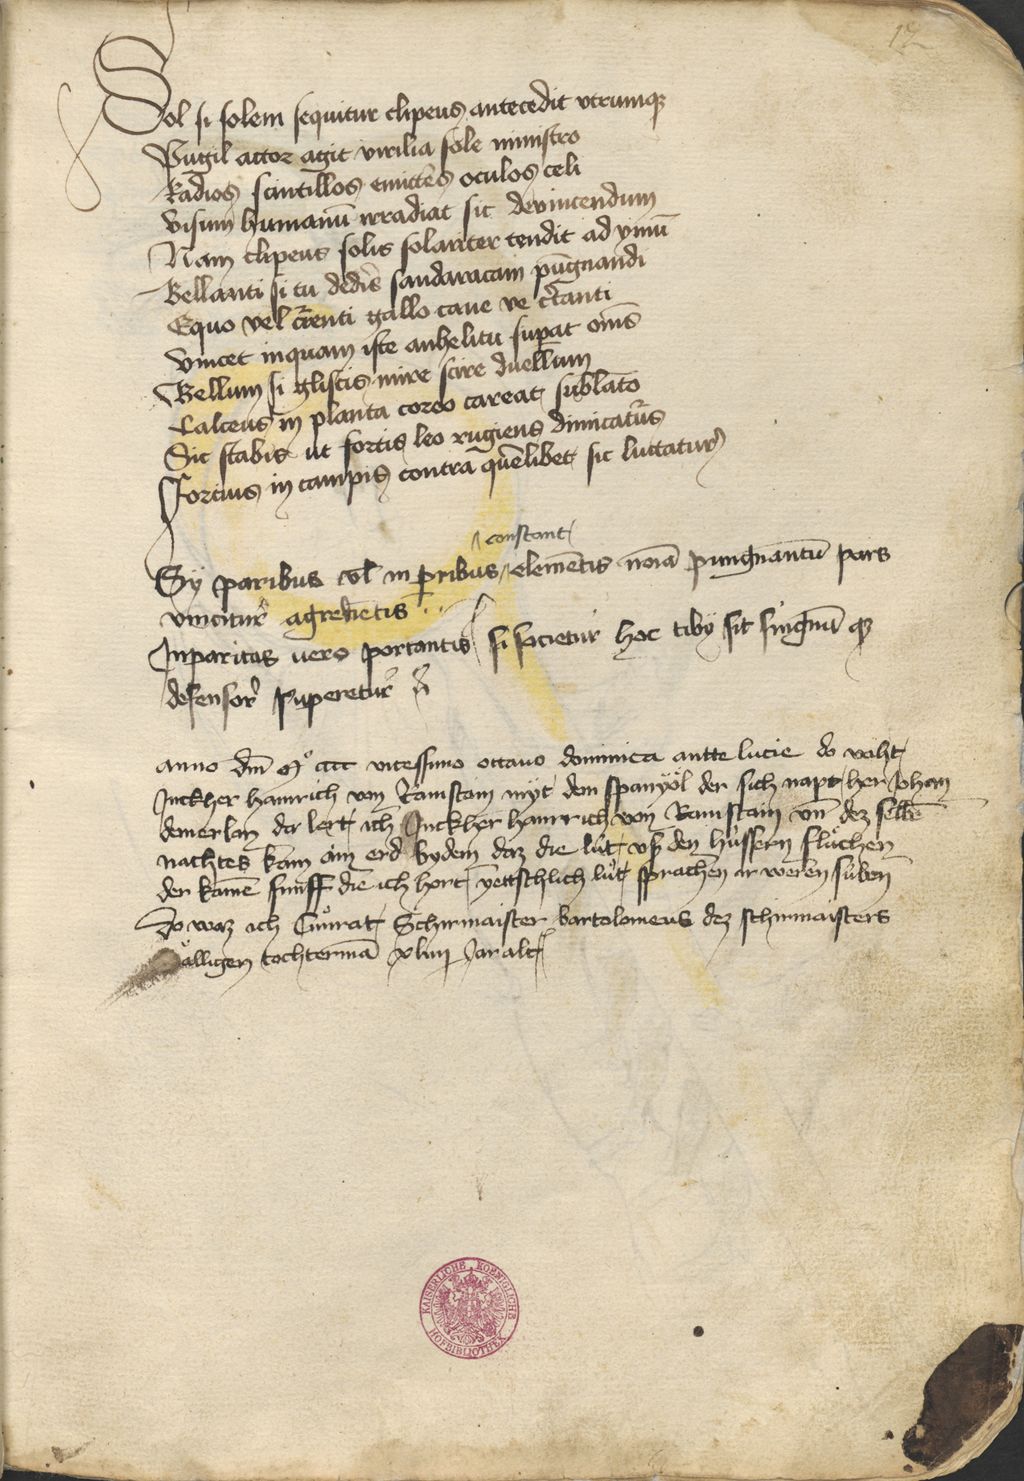 12
Sol si solem sequitur clipeus antecedit utrumqꝫ
Pugil actor agit virilia sole ministro
Radios scintillos emittēs oculos celi
Visum humanū irradiat sic devincendum
Nam clipeus solis solariter tendit ad ymū
Bellanti si tu dedis̄ sandaracam pūgnandi
Equo vel c̄renti gallo caue ve c̄tanti
Vincet inquam iste anhelitu supat om̄s
Bellum si gliscis mire scire duellum
Calceus in planta coreo careat sublato
Sic stabis ut fortis leo rugiens dimicatur̄
Forcius in campis contra quēlibet sic luctatur
constant
Sy paribus vl̄ inparibus elemētis noīa pungnantū pars
vincitur agrediētis
Inparitas uero portantis si societur hoc tiby sit singnū qꝫ
defensor superetur
anno dm̄ mº cccc vicessimo octauo dominica antte lucie do vaͤht
Juckher hainrich von Ramstain myt dem spanyol der sich napt her Johan
demerlan da lert ich Juckher hainrich von Ramstain vn̄ dez selbē
nachtes kam ain erd bydem daz die luͤt usß den huͤssern fluͤchen
der kamē funff die ich hort yettschlich luͤt sprachen ir weren suben
Do waz ich Cuͦnrat Schirmaister bartolomeus dez schirmaisters
saͤlligen tochtermā xliiij Jar alt
KAISERLICHE KOENIGLICHE
HOFBIBLIOTHEK